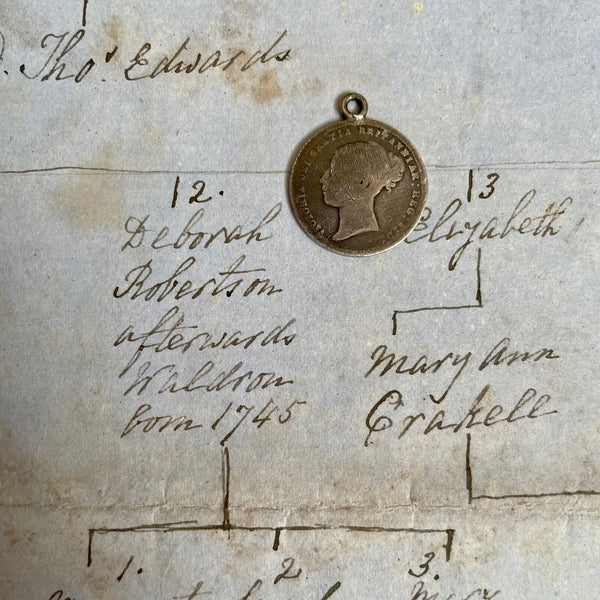 Thos. Edwards
12.
Deborah
Robertson
afterwards
Waldron
born 1745
13
Elizabeth
Mary Ann
Crakell
VICTORIA DEI GRATIA BRITANNIAR: REG:
1.
2
3.
Mary